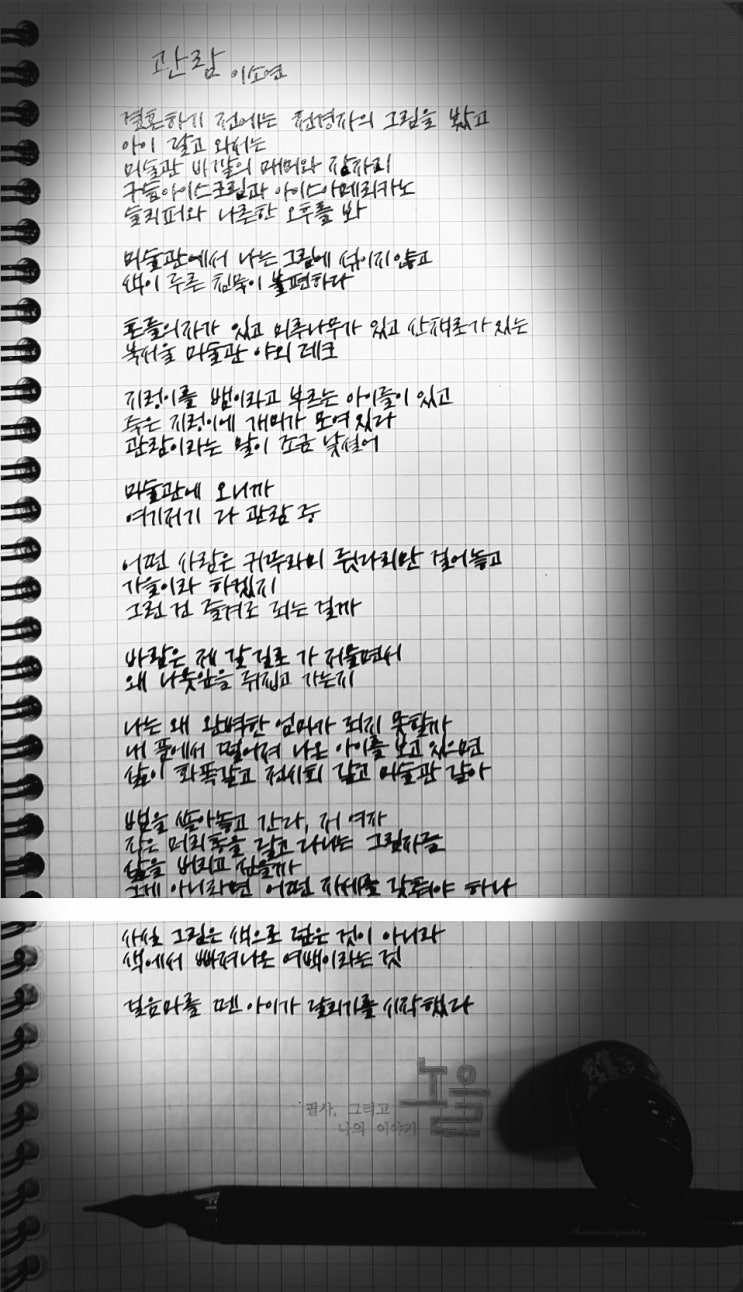 관람 이소연
결혼하기 전에는 천경자의 그림을 봤고
아이 달고 와서는
미술관 바깥의 매미와 잠자리
구슬아이스크림과 아이스아메리카노
슬리퍼와 나른한 오후를 봐
미술관에서 나는 그림에 섞이지 않고
색이 두른 침묵이 불편하다
흔들의자가 있고 미루나무가 있고 산책로가 있는
북서울 미술관 야외 데크
지렁이를 뱀이라고 부르는 아이들이 있고
죽은 지렁이에 개미가 모여 있다
관람이라는 말이 조금 낯설어
미술관에 오니까
여기저기 다 관람 중
어떤 사람은 귀뚜라미 뒷다리만 걸어놓고
가을이라 하겠지
그런 건 즐겨도 되는 걸까
바람은 제 갈 길로 가 저물면서
왜 나뭇잎을 뒤집고 가는지
나는 왜 완벽한 엄마가 되지 못할까
내 품에서 떨어져 나온 아이를 보고 있으면
삶이 화폭같고 전시회 같고 미술관 같아
뱀을 쏟아놓고 간다, 저 여자
작은 머리통을 달고 다니는 그림자들
삶을 버리고 싶을까
그게 아니라면 어떤 자세를 갖춰야 하나
사실 그림은 색으로 덮은 것이 아니라
색에서 빠져나온 여백이라는 것
걸음마를 뗀 아이가 달리기를 시작했다
필사, 그리고
나의 이야기
노을